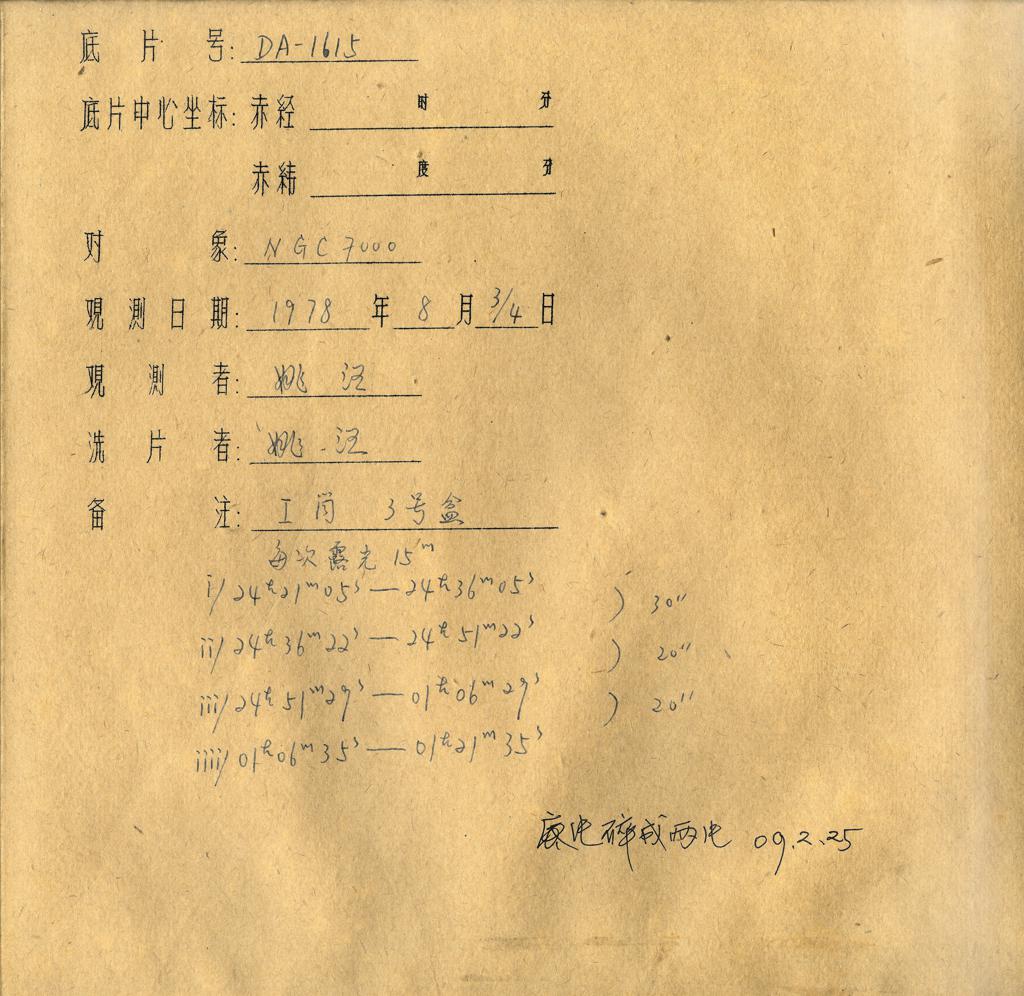 底片号: DA-1615
底片中心坐标: 赤经 时 分
赤纬 度 分
对象: NGC 7000
观测日期: 1978 年 8 月 3/4 日
观测者: 姚 汪
洗片者: 姚 汪
备注: I 岗 3号盒
每次露光 15ᵐ
i/ 24ʰ21ᵐ05ˢ — 24ʰ36ᵐ05ˢ ) 30"
ii/ 24ʰ36ᵐ22ˢ — 24ʰ51ᵐ22ˢ ) 20"
iii/ 24ʰ51ᵐ29ˢ — 01ʰ06ᵐ29ˢ ) 20"
iiii/ 01ʰ06ᵐ35ˢ — 01ʰ21ᵐ35ˢ
底片碎成两片 09.2.25